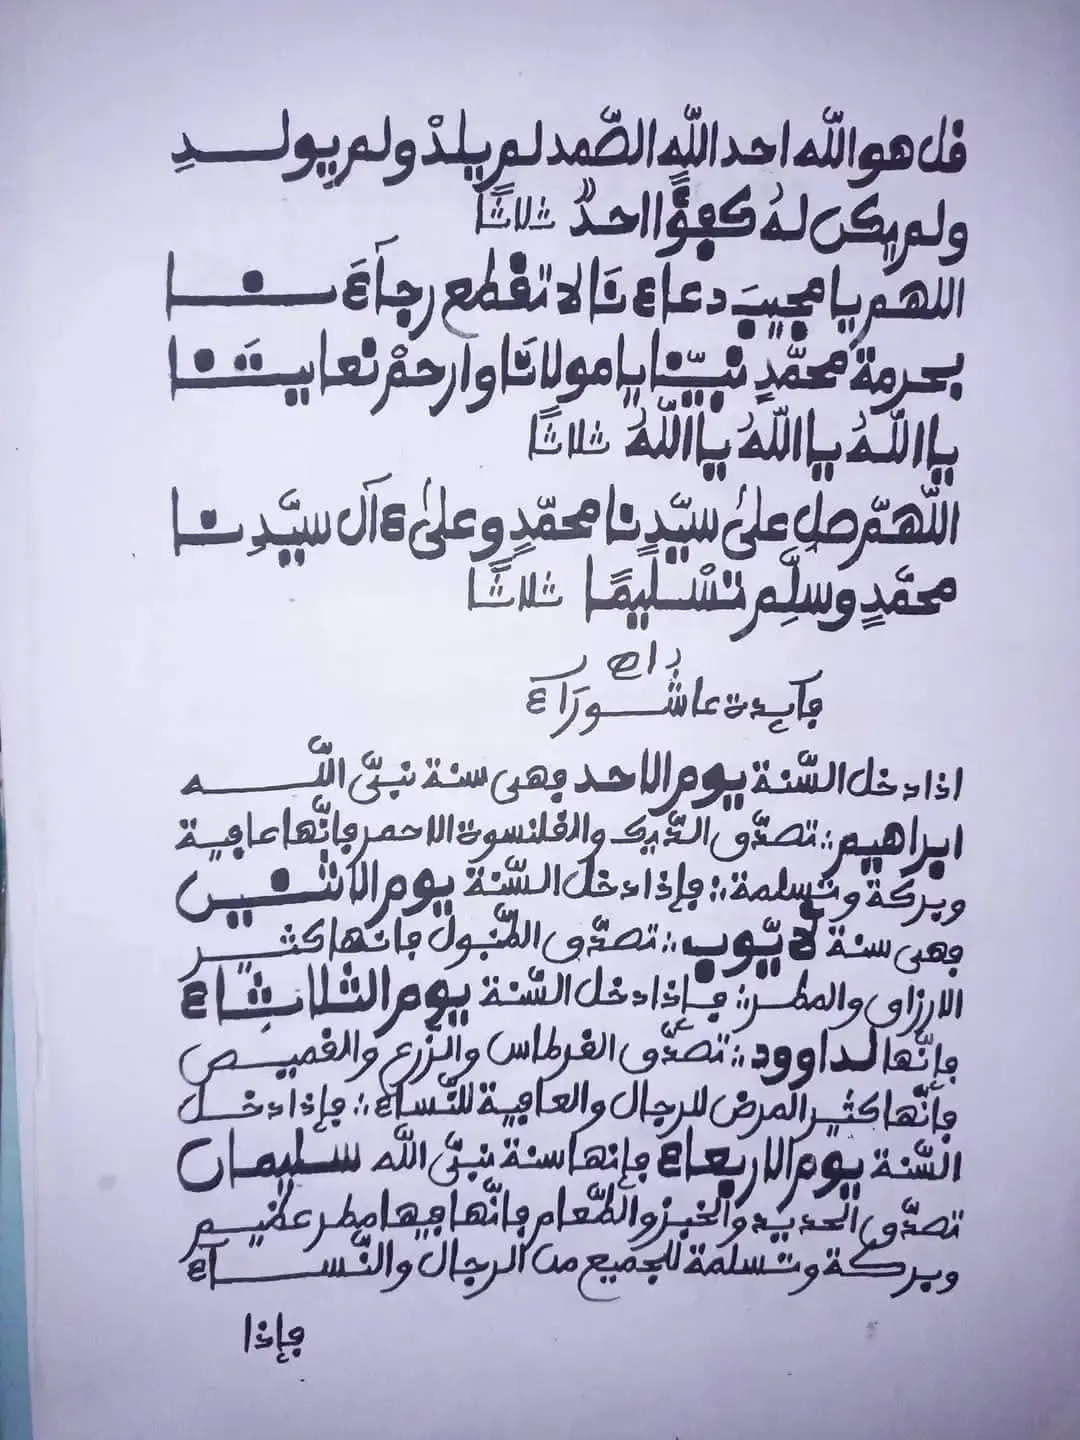 قل هو الله احد الله الصّمد لم يلدْ ولم يولد
ولم يكن له كفؤًا احدٌ ثلاثًا
اللهم يا مجيبَ دعاءنَا لا تقطع رجآءَنا
بحرمة محمّدٍ نبيّنا يا مولانَا وارحمْ تعابيتَنا
يا اللهُ يا اللهُ يا اللهُ ثلاثًا
اللهمّ صل على سيّدِنا محمّدٍ وعلى ءآل سيّدِنا
محمّدٍ وسلّم تسْليمًا ثلاثًا
فآيدة عاشورَآء
اذا دخل السّنة يوم الاحد فهى سنة نبيّ الله
ابراهيم ؞ تصدّق الدّيك والقلنسوة الاحمر فإنّها عافية
وبركة وتسلمة ؞ فإذا دخل السّنة يوم الاثنين
فهى سنة لأيّوب ؞ تصدّق الطّبول فانها كثير
الارزاق والمطر ؞ فإذا دخل السّنة يوم الثلاثاء
فإنّها لداوود ؞ تصدّق القرطاس والزّرع والقميص
فإنّها كثير المرض للرجال والعافية للنّساء ؞ فإذا دخل
السّنة يوم الاربعاء فإنها سنة نبيّ الله سليمان
تصدّق الحديد والخبز والطّعام فإنّها فيها مطر عظيم
وبركة وتسلمة للجميع من الرجال والنّسآء
فإذا